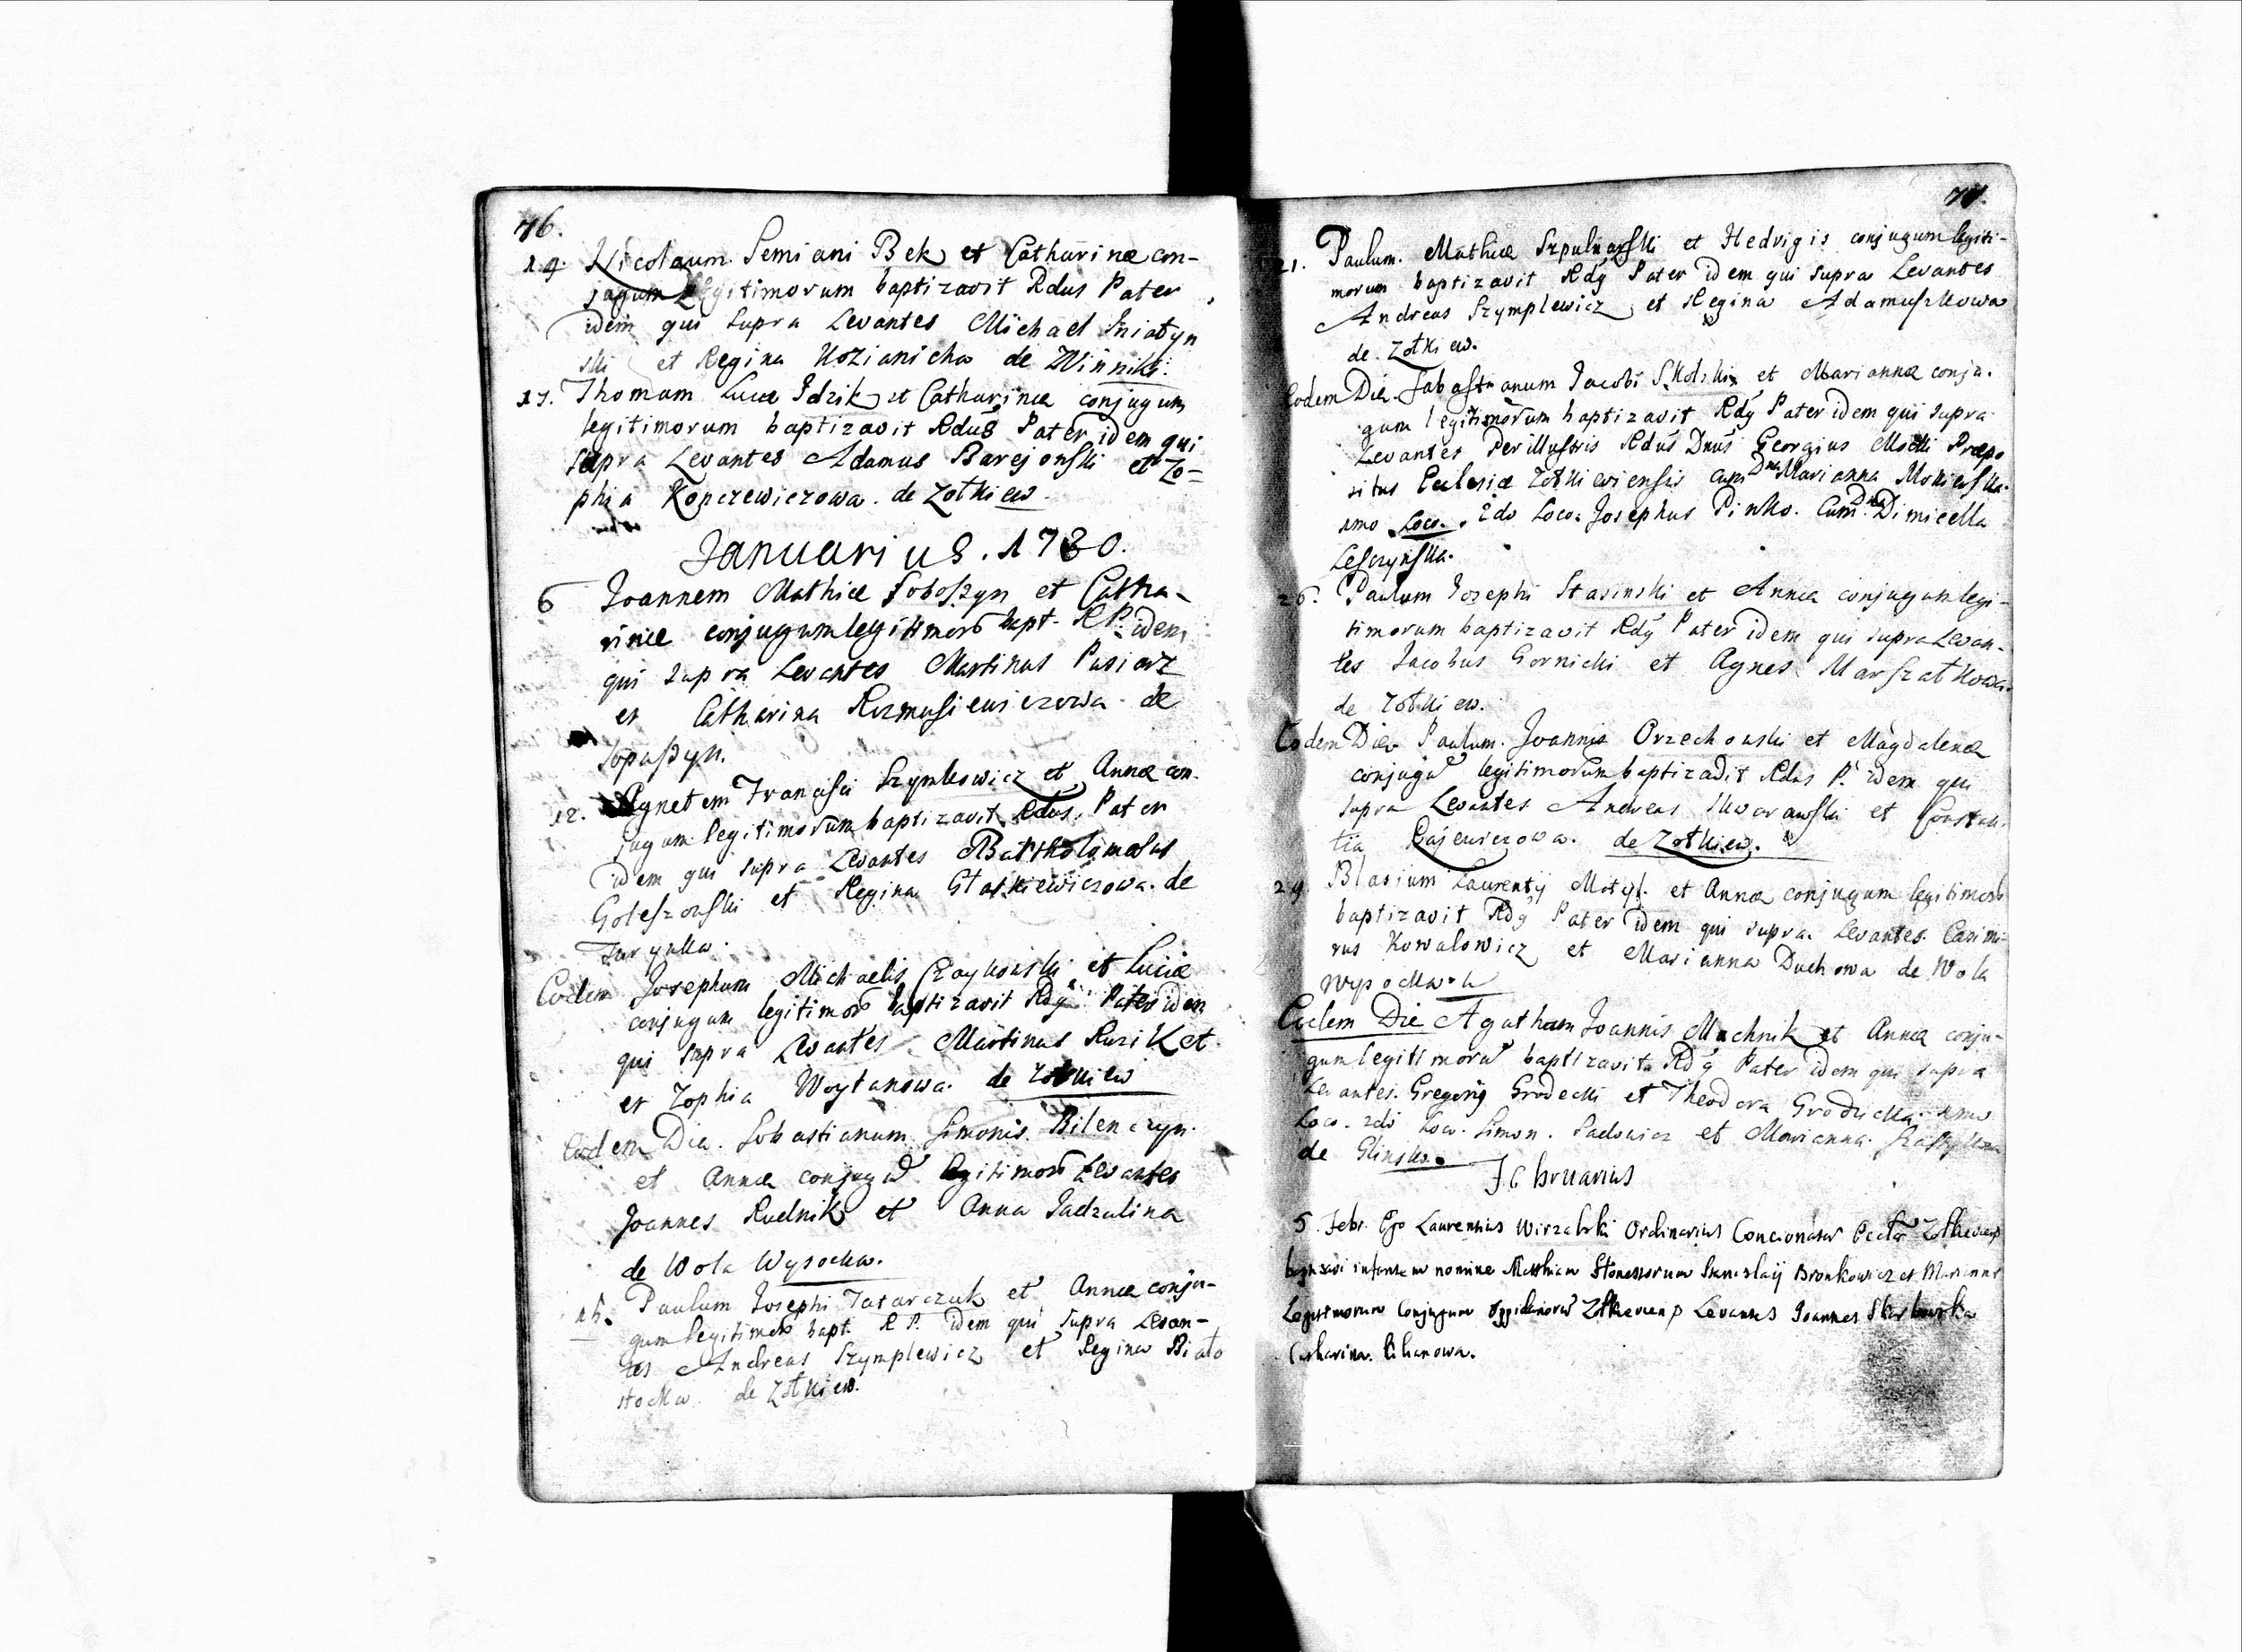 76.
19. Nicolaum. Semiani Bek et Catharinæ con-
jugum Legitimorum baptizavit Rdus Pater
idem qui supra Levantes Michael Sniatyn
ski et Regina Kozianicha de Winniki.
17. Thomam Lucæ Idzik et Catharinæ conjugum
legitimorum baptizavit Rdus Pater idem qui
supra Levantes Adamus Barejowski et Zo=
phia Kopczewiczowa. de Zołkiew.
Januarius. 1730.
6 Joannem Mathiæ Soboszyn et Catha-
rinæ conjugum legitimorũ bapt. R P. idem
qui supra Levantes Martinus Pasiarz
et Catharina Rozmusiewiczowa de
Soposzyn.
12. Agnetem Francisci Szymkowicz et Annæ con-
jugum legitimorum baptizavit Rdus. Pater
idem qui supra Levantes Bartholomæus
Goleszowski et Regina Głoskiewiczowa. de
Turynka.
Eodem Josephum Michaelis Czaykowski et Luciæ
conjugum legitimorũ baptizavit Rdg Pater idem
qui supra Levantes Martinus Ruzik et
et Zophia Woytanowa. de Zołkiew
Eodem Die. Sebastianum Simonis. Bilenczyn.
et Annæ conjugũ legitimorũ Levantes
Joannes Rudnik et Anna Sadzulina
de Wola Wysocka.
15. Paulum Josephi Tatarczuk et Annæ conju-
gum legitimorũ bapt. R P. idem qui supra Levan-
tes Andreas Szymplewicz et Regina Biało
stocka de Zołkiew.
21. Paulum. Mathiæ Szpulnarski et Hedvigis conjugum legiti-
morum baptizavit Rdg Pater idem qui supra Levantes
Andreas Szymplewicz et Regina Adamuszkowa
de Zołkiew.
Eodem Die. Sabastianum Jacobi Skolski et Mariannæ conju.
gum legitimorum baptizavit Rdg Pater idem qui supra
Levantes Perillustris Rdus Dnus Georgius Mocki Præpo
situs Ecclesiæ Zołkieviensis cum Dna Marianna Mokiewska.
1mo Loco. 2do Loco. Josephus Pinko. Cum Dna Dimicella
Lesczynska.
26. Paulum Josephi Stasinski et Annæ conjugum legi-
timorum baptizavit Rdg Pater idem qui supra Levan-
tes Jacobus Gornicki et Agnes Marszałkowa.
de Zołkiew.
Eodem Die Paulum. Joannis Orzechowski et Magdalenæ
conjugũ legitimorum baptizavit Rdus P. idem qui
supra Levantes Andreas Skwarawski et Constan-
tia Gajewiczowa. de Zołkiew.
29 Blasium Laurentij Motyl. et Annæ conjugum legitimorũ
baptizavit Rdg Pater idem qui supra. Levantes. Casimi-
rus Kowalowicz et Marianna Duchowa de Wola
wysocka
Eodem Die Agatham Joannis Machnik et Annæ conju-
gum legitimorũ baptizavit Rdg Pater idem qui supra
Levantes. Gregorig Grodecki et Theodora Grodzicka. 1mo
Loco. 2do Loco. Simon. Sadowicz et Marianna.
de Glinsko.
Februarius
5. Febr. Ego Laurentius Wirzalski Ordinarius Concionator Zołkievien
baptizavi infantem nomine Matthiam Honestorum Stanislaij Bronkowicz et Mariannæ
Legitimorum Conjugum oppidanorũ Zołkievien Levantes Joannes
Catharina.